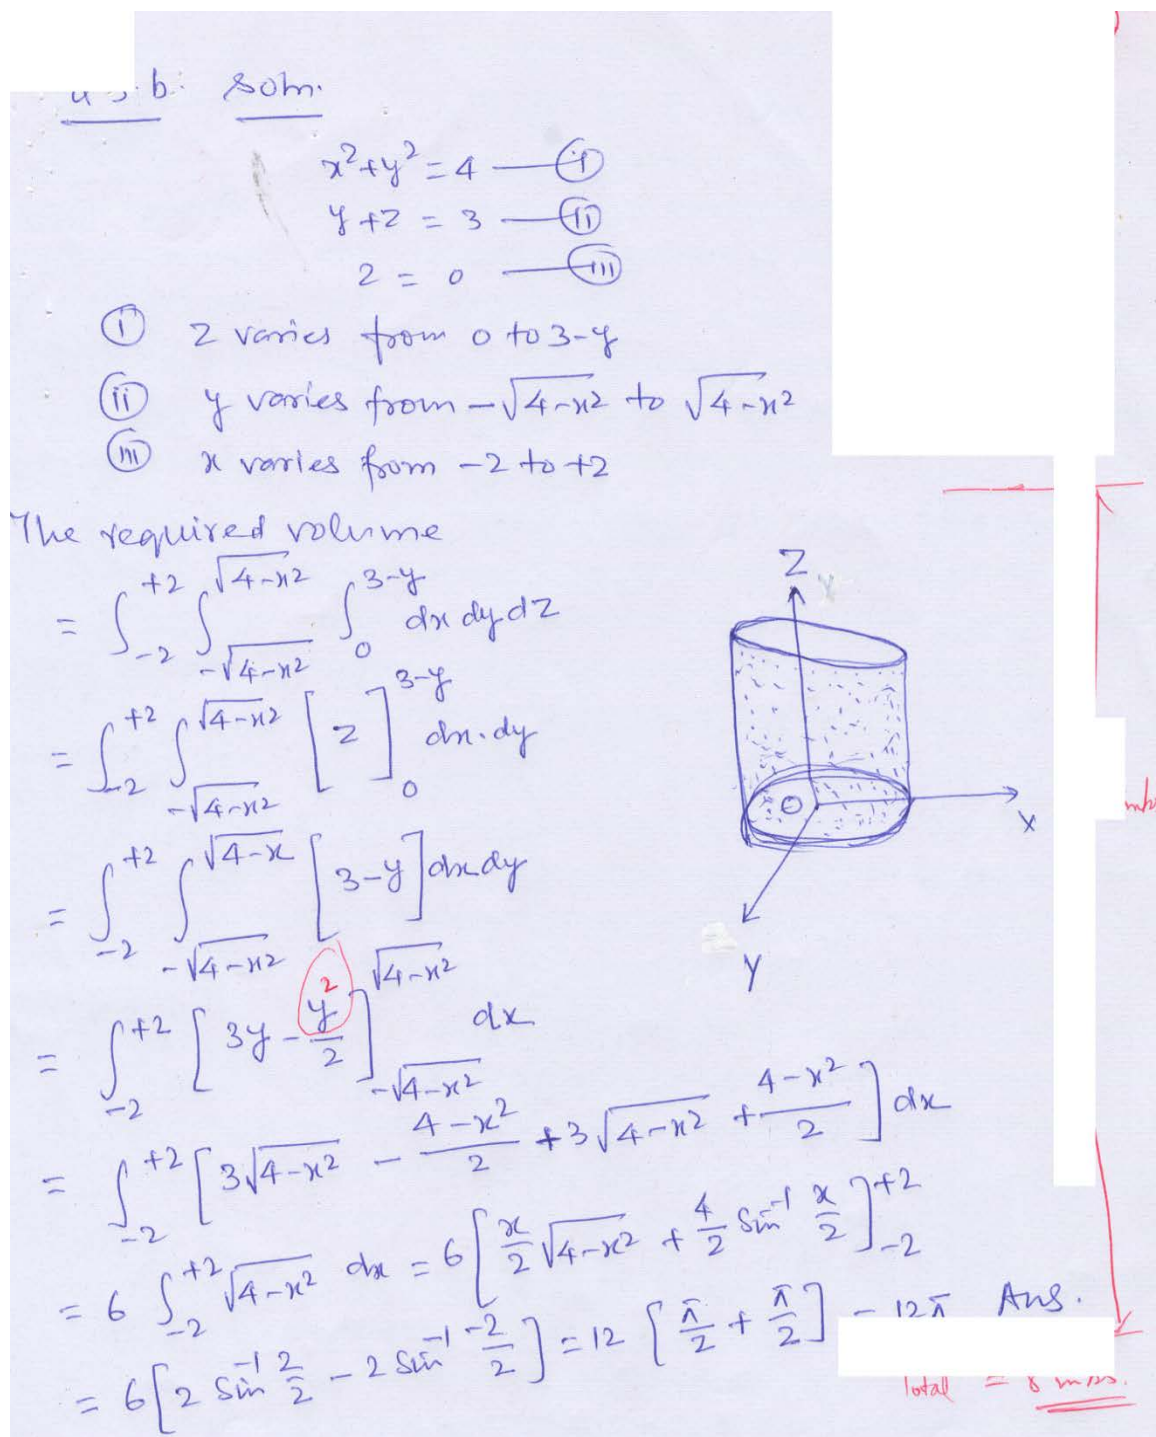 b. Soln.
x²+y² = 4 — (i)
y+z = 3 — (ii)
z = 0 — (iii)
(i) z varies from 0 to 3-y
(ii) y varies from -√(4-x²) to √(4-x²)
(iii) x varies from -2 to +2
The required volume
= ∫_{-2}^{+2} ∫_{-√(4-x²)}^{√(4-x²)} ∫_0^{3-y} dx dy dz
= ∫_{-2}^{+2} ∫_{-√(4-x²)}^{√(4-x²)} [z]_0^{3-y} dx.dy
= ∫_{-2}^{+2} ∫_{-√(4-x²)}^{√(4-x)} [3-y] dx dy
= ∫_{-2}^{+2} [3y - y²/2]_{-√(4-x²)}^{√(4-x²)} dx
= ∫_{-2}^{+2} [3√(4-x²) - (4-x²)/2 + 3√(4-x²) + (4-x²)/2] dx
= 6 ∫_{-2}^{+2} √(4-x²) dx = 6[x/2 √(4-x²) + 4/2 sin⁻¹ x/2]_{-2}^{+2}
= 6[2 sin⁻¹ 2/2 - 2 sin⁻¹ -2/2] = 12 [π/2 + π/2] = 12π Ans.
Z
O
X
Y
Total = 8 mks.